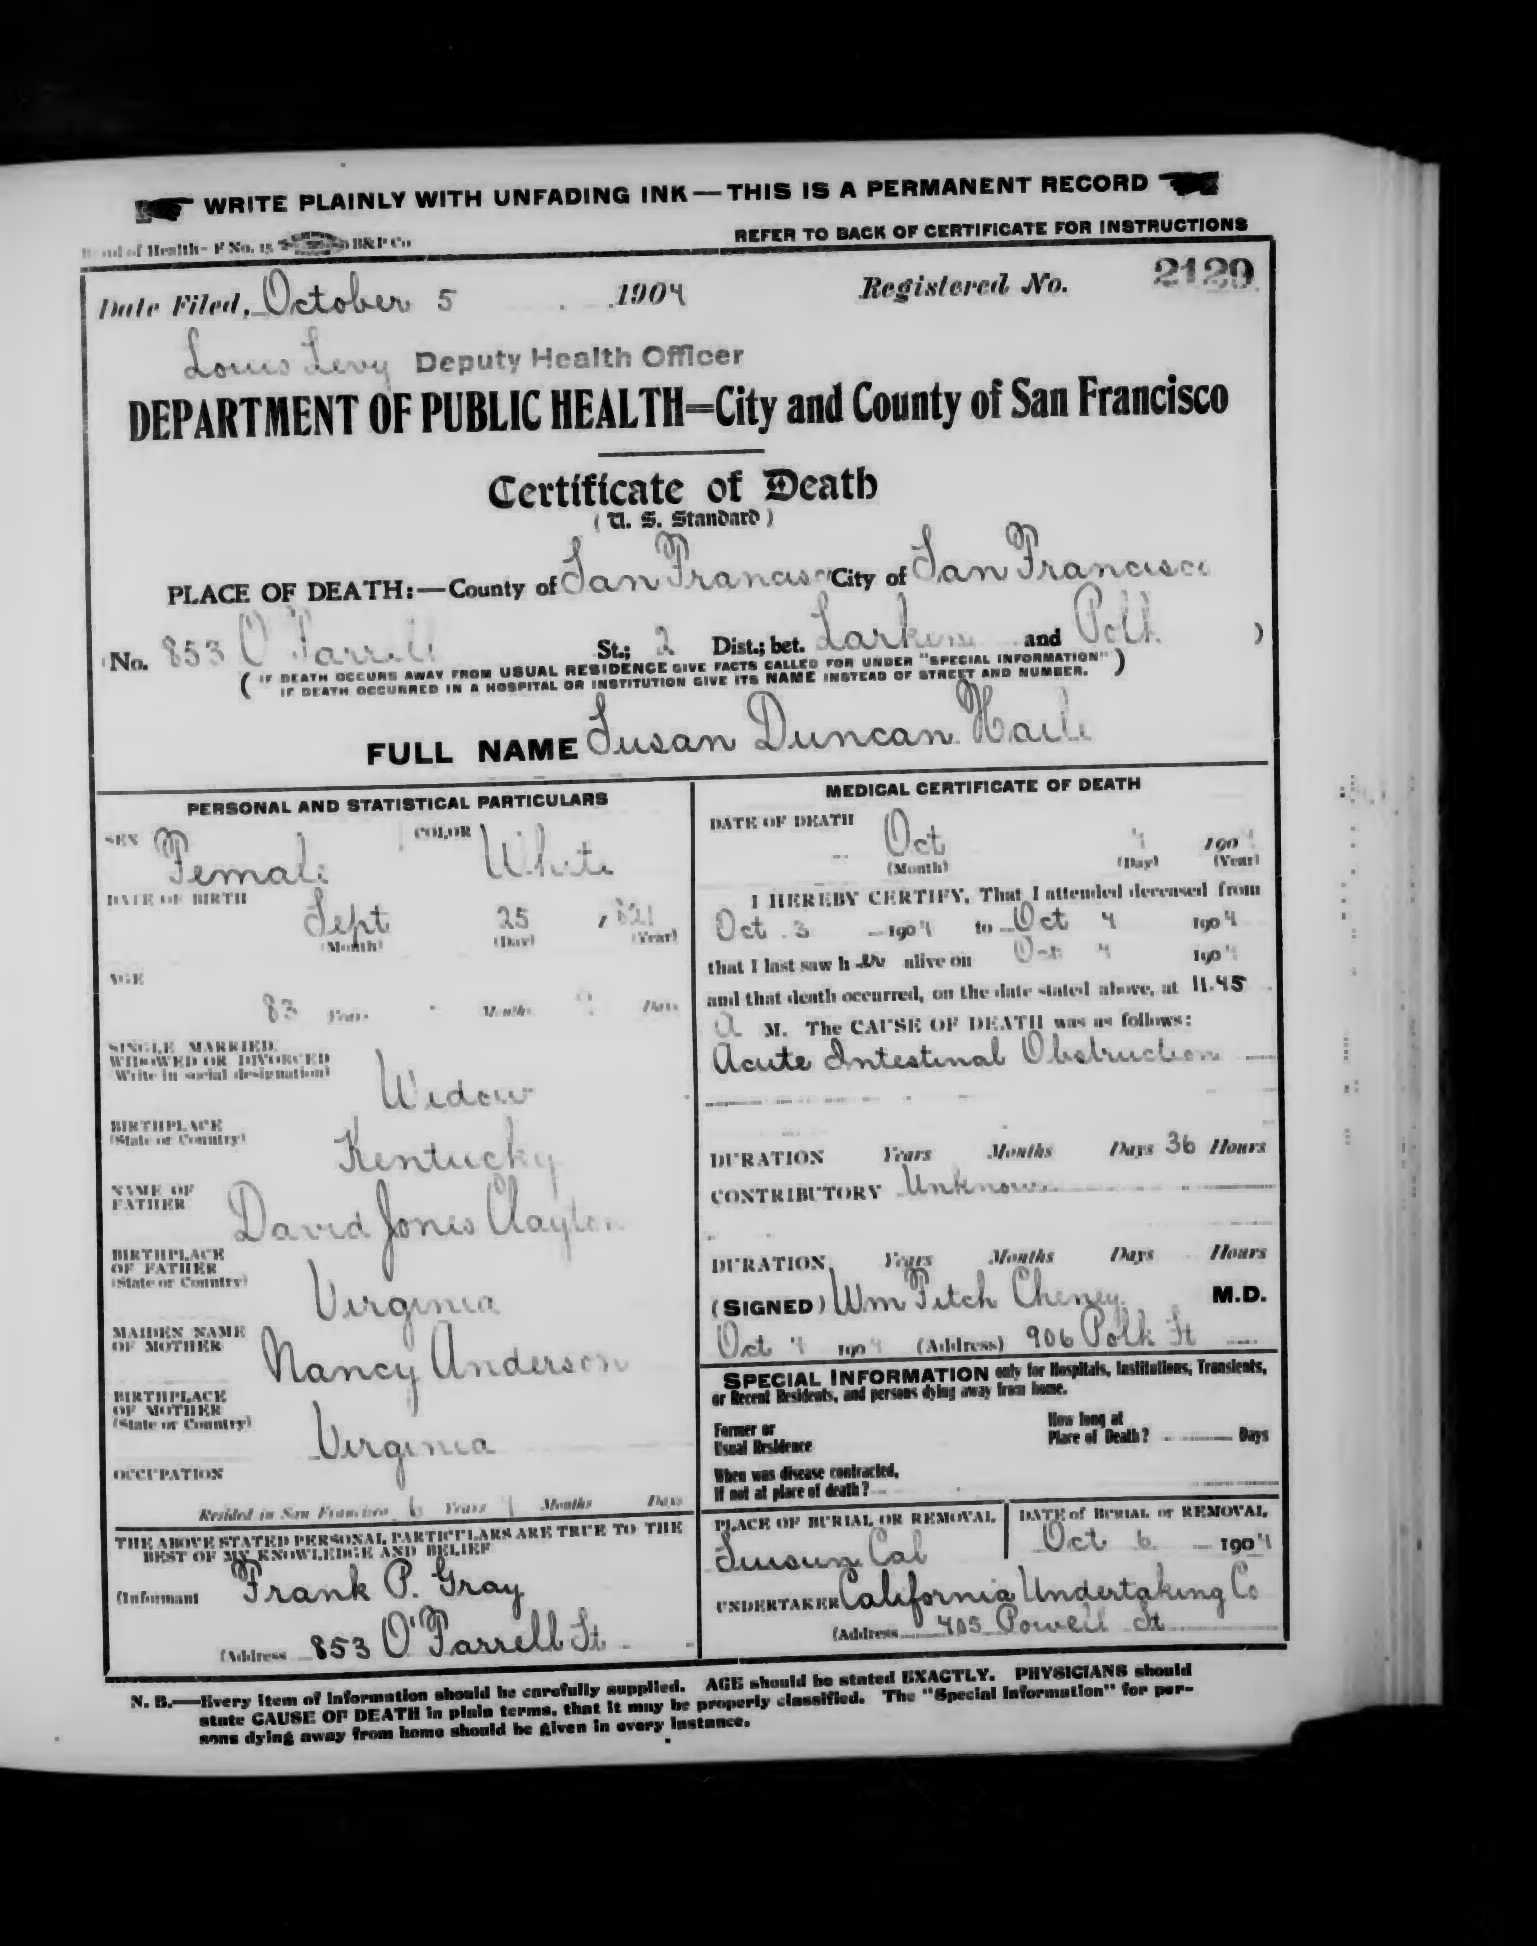 WRITE PLAINLY WITH UNFADING INK—THIS IS A PERMANENT RECORD
Board of Health—F No. 15 B&P Co
REFER TO BACK OF CERTIFICATE FOR INSTRUCTIONS
Date Filed, October 5 1904 Registered No. 2129
Louis Levy Deputy Health Officer
DEPARTMENT OF PUBLIC HEALTH=City and County of San Francisco
Certificate of Death
(U. S. Standard)
PLACE OF DEATH:—County of San Francisco City of San Francisco
(No. 853 O'Farrell St.; 2 Dist.; bet. Larkin and Polk )
( IF DEATH OCCURS AWAY FROM USUAL RESIDENCE GIVE FACTS CALLED FOR UNDER "SPECIAL INFORMATION" )
IF DEATH OCCURRED IN A HOSPITAL OR INSTITUTION GIVE ITS NAME INSTEAD OF STREET AND NUMBER.
FULL NAME Susan Duncan Haile
PERSONAL AND STATISTICAL PARTICULARS
SEX Female COLOR White
DATE OF BIRTH
Sept 25 , 821
(Month) (Day) (Year)
AGE
83 Years Months 9 Days
SINGLE MARRIED,
WIDOWED OR DIVORCED
(Write in social designation)
Widow
BIRTHPLACE
(State or Country)
Kentucky
NAME OF
FATHER
David Jones Clayton
BIRTHPLACE
OF FATHER
(State or Country)
Virginia
MAIDEN NAME
OF MOTHER
Nancy Anderson
BIRTHPLACE
OF MOTHER
(State or Country)
Virginia
OCCUPATION
Resided in San Francisco 6 Years Months Days
THE ABOVE STATED PERSONAL PARTICULARS ARE TRUE TO THE
BEST OF MY KNOWLEDGE AND BELIEF
(Informant Frank P. Gray
(Address 853 O'Farrell St
MEDICAL CERTIFICATE OF DEATH
DATE OF DEATH
Oct 4 1904
(Month) (Day) (Year)
I HEREBY CERTIFY, That I attended deceased from
Oct 3 1904 to Oct 4 1904
that I last saw h er alive on Oct 4 1904
and that death occurred, on the date stated above, at 11.45
A M. The CAUSE OF DEATH was as follows:
Acute Intestinal Obstruction
DURATION Years Months Days 36 Hours
CONTRIBUTORY Unknown
DURATION Years Months Days Hours
(SIGNED) Wm Fitch Cheney M.D.
Oct 4 1904 (Address) 906 Polk St
SPECIAL INFORMATION only for Hospitals, Institutions, Transients,
or Recent Residents, and persons dying away from home.
Former or
Usual Residence
How long at
Place of Death? Days
When was disease contracted,
If not at place of death?
PLACE OF BURIAL OR REMOVAL
Suisun Cal
DATE of BURIAL or REMOVAL
Oct 6 1904
UNDERTAKER California Undertaking Co
(Address 405 Powell St
N. B.—Every item of information should be carefully supplied. AGE should be stated EXACTLY. PHYSICIANS should
state CAUSE OF DEATH in plain terms, that it may be properly classified. The "Special Information" for per-
sons dying away from home should be given in every instance.